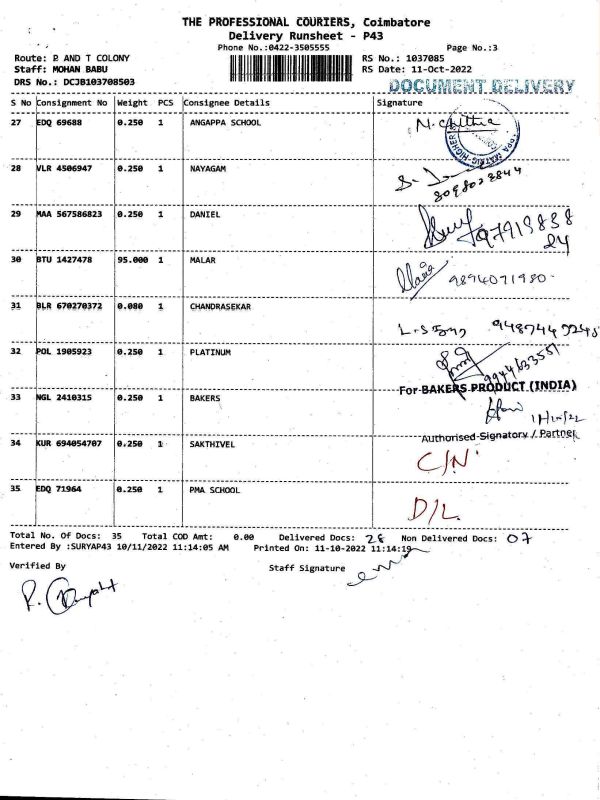 THE PROFESSIONAL COURIERS, Coimbatore
Delivery Runsheet - P43
Phone No.:0422-3505555 Page No.:3
Route: P. AND T COLONY RS No.: 1037085
Staff: MOHAN BABU RS Date: 11-Oct-2022
DRS No.: DCJB103708503
DOCUMENT DELIVERY
S No Consignment No Weight PCS Consignee Details Signature
27 EDQ 69688 0.250 1 ANGAPPA SCHOOL
28 VLR 4506947 0.250 1 NAYAGAM
8098023844
29 MAA 567586823 0.250 1 DANIEL
97919838
24
30 BTU 1427478 95.000 1 MALAR
9894071980
31 BLR 670270372 0.080 1 CHANDRASEKAR
32 POL 1905923 0.250 1 PLATINUM
For BAKERS PRODUCT (INDIA)
33 NGL 2410315 0.250 1 BAKERS
11/10/22
Authorised Signatory / Partner
34 KUR 694054707 0.250 1 SAKTHIVEL C/N
35 EDQ 71964 0.250 1 PMA SCHOOL D/L
Total No. Of Docs: 35 Total COD Amt: 0.00 Delivered Docs: 28 Non Delivered Docs: 07
Entered By :SURYAP43 10/11/2022 11:14:05 AM Printed On: 11-10-2022 11:14:19
Verified By Staff Signature